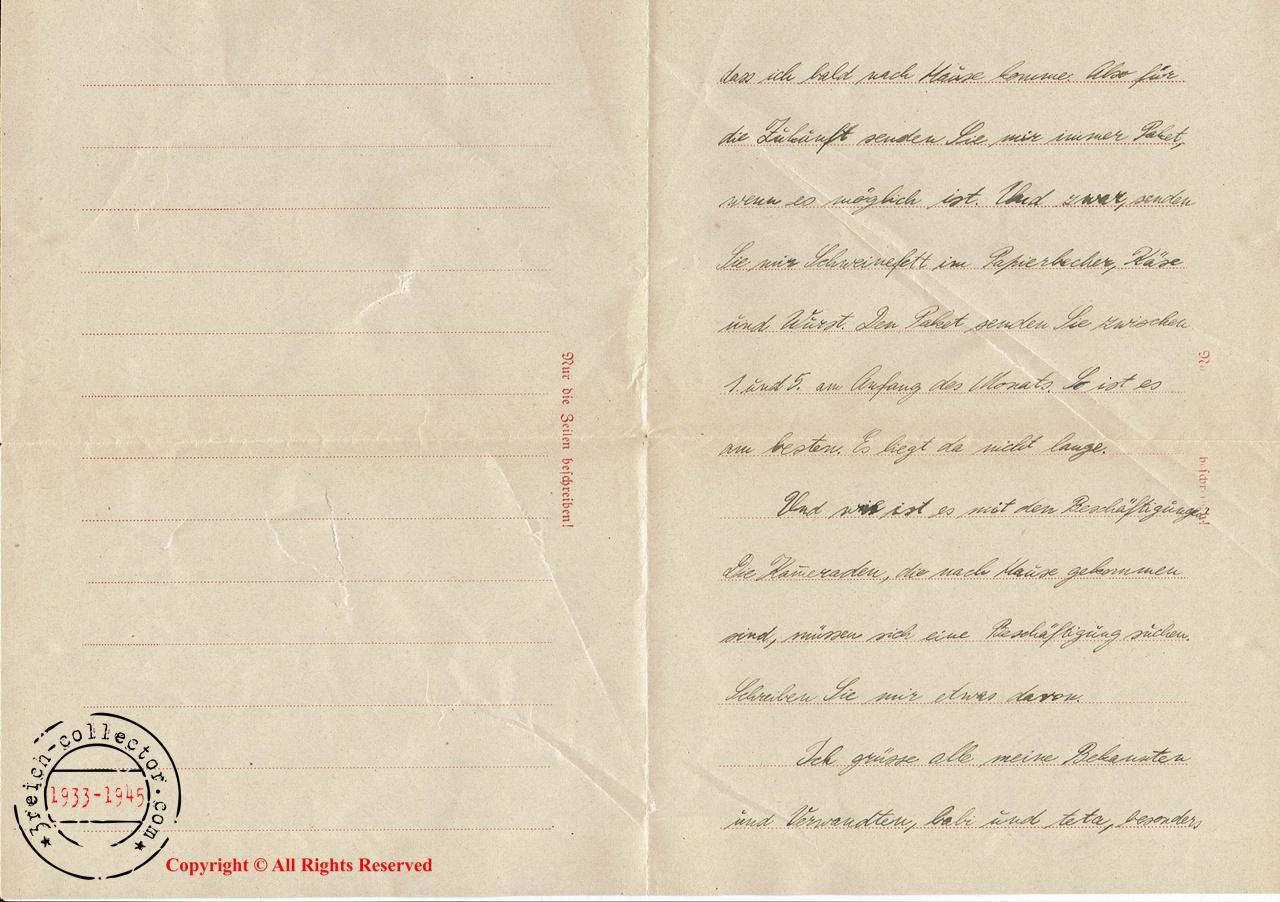 Nur die Zeilen beschreiben!
3reich-collector.com
1933-1945
Copyright © All Rights Reserved
dass ich bald nach Hause komme. Also für
die Zukunft senden Sie mir immer Paket,
wenn es möglich ist. Und zwar, senden
Sie mir Schweinefett im Papierbecher, Käse
und Wurst. Den Paket senden Sie zwischen
1. und 5. am Anfang des Monats. So ist es
am besten. Es liegt da nicht lange.
Und wie ist es mit den Beschäftigungen?
Die Kameraden, die nach Hause gekommen
sind, müssen sich eine Beschäftigung suchen.
Schreiben Sie mir etwas davon.
Ich grüsse alle meine Bekannten
und Verwandten, babi und teta, besonders